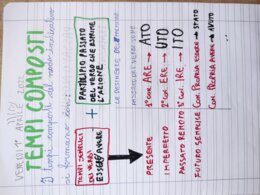 VENERDÌ 1 APRILE 2022
TEMPI COMPOSTI
I tempi composti del modo indicativo
si formano con:
TEMPI SEMPLICI
DEI VERBI
ESSERE/AVERE
+
PARTICIPIO PASSATO
DEL VERBO CHE ESPRIME
L'AZIONE
LE DESINENZE DEL PARTICIPIO
PASSATO DEI VERBI SONO
PRESENTE
IMPERFETTO
PASSATO REMOTO
FUTURO SEMPLICE
1ª CON. ARE → ATO
2ª CON. ERE → UTO
3ª CON. IRE → ITO
CON. PROPRIA ESSERE → STATO
CON. PROPRIA AVERE → AVUTO